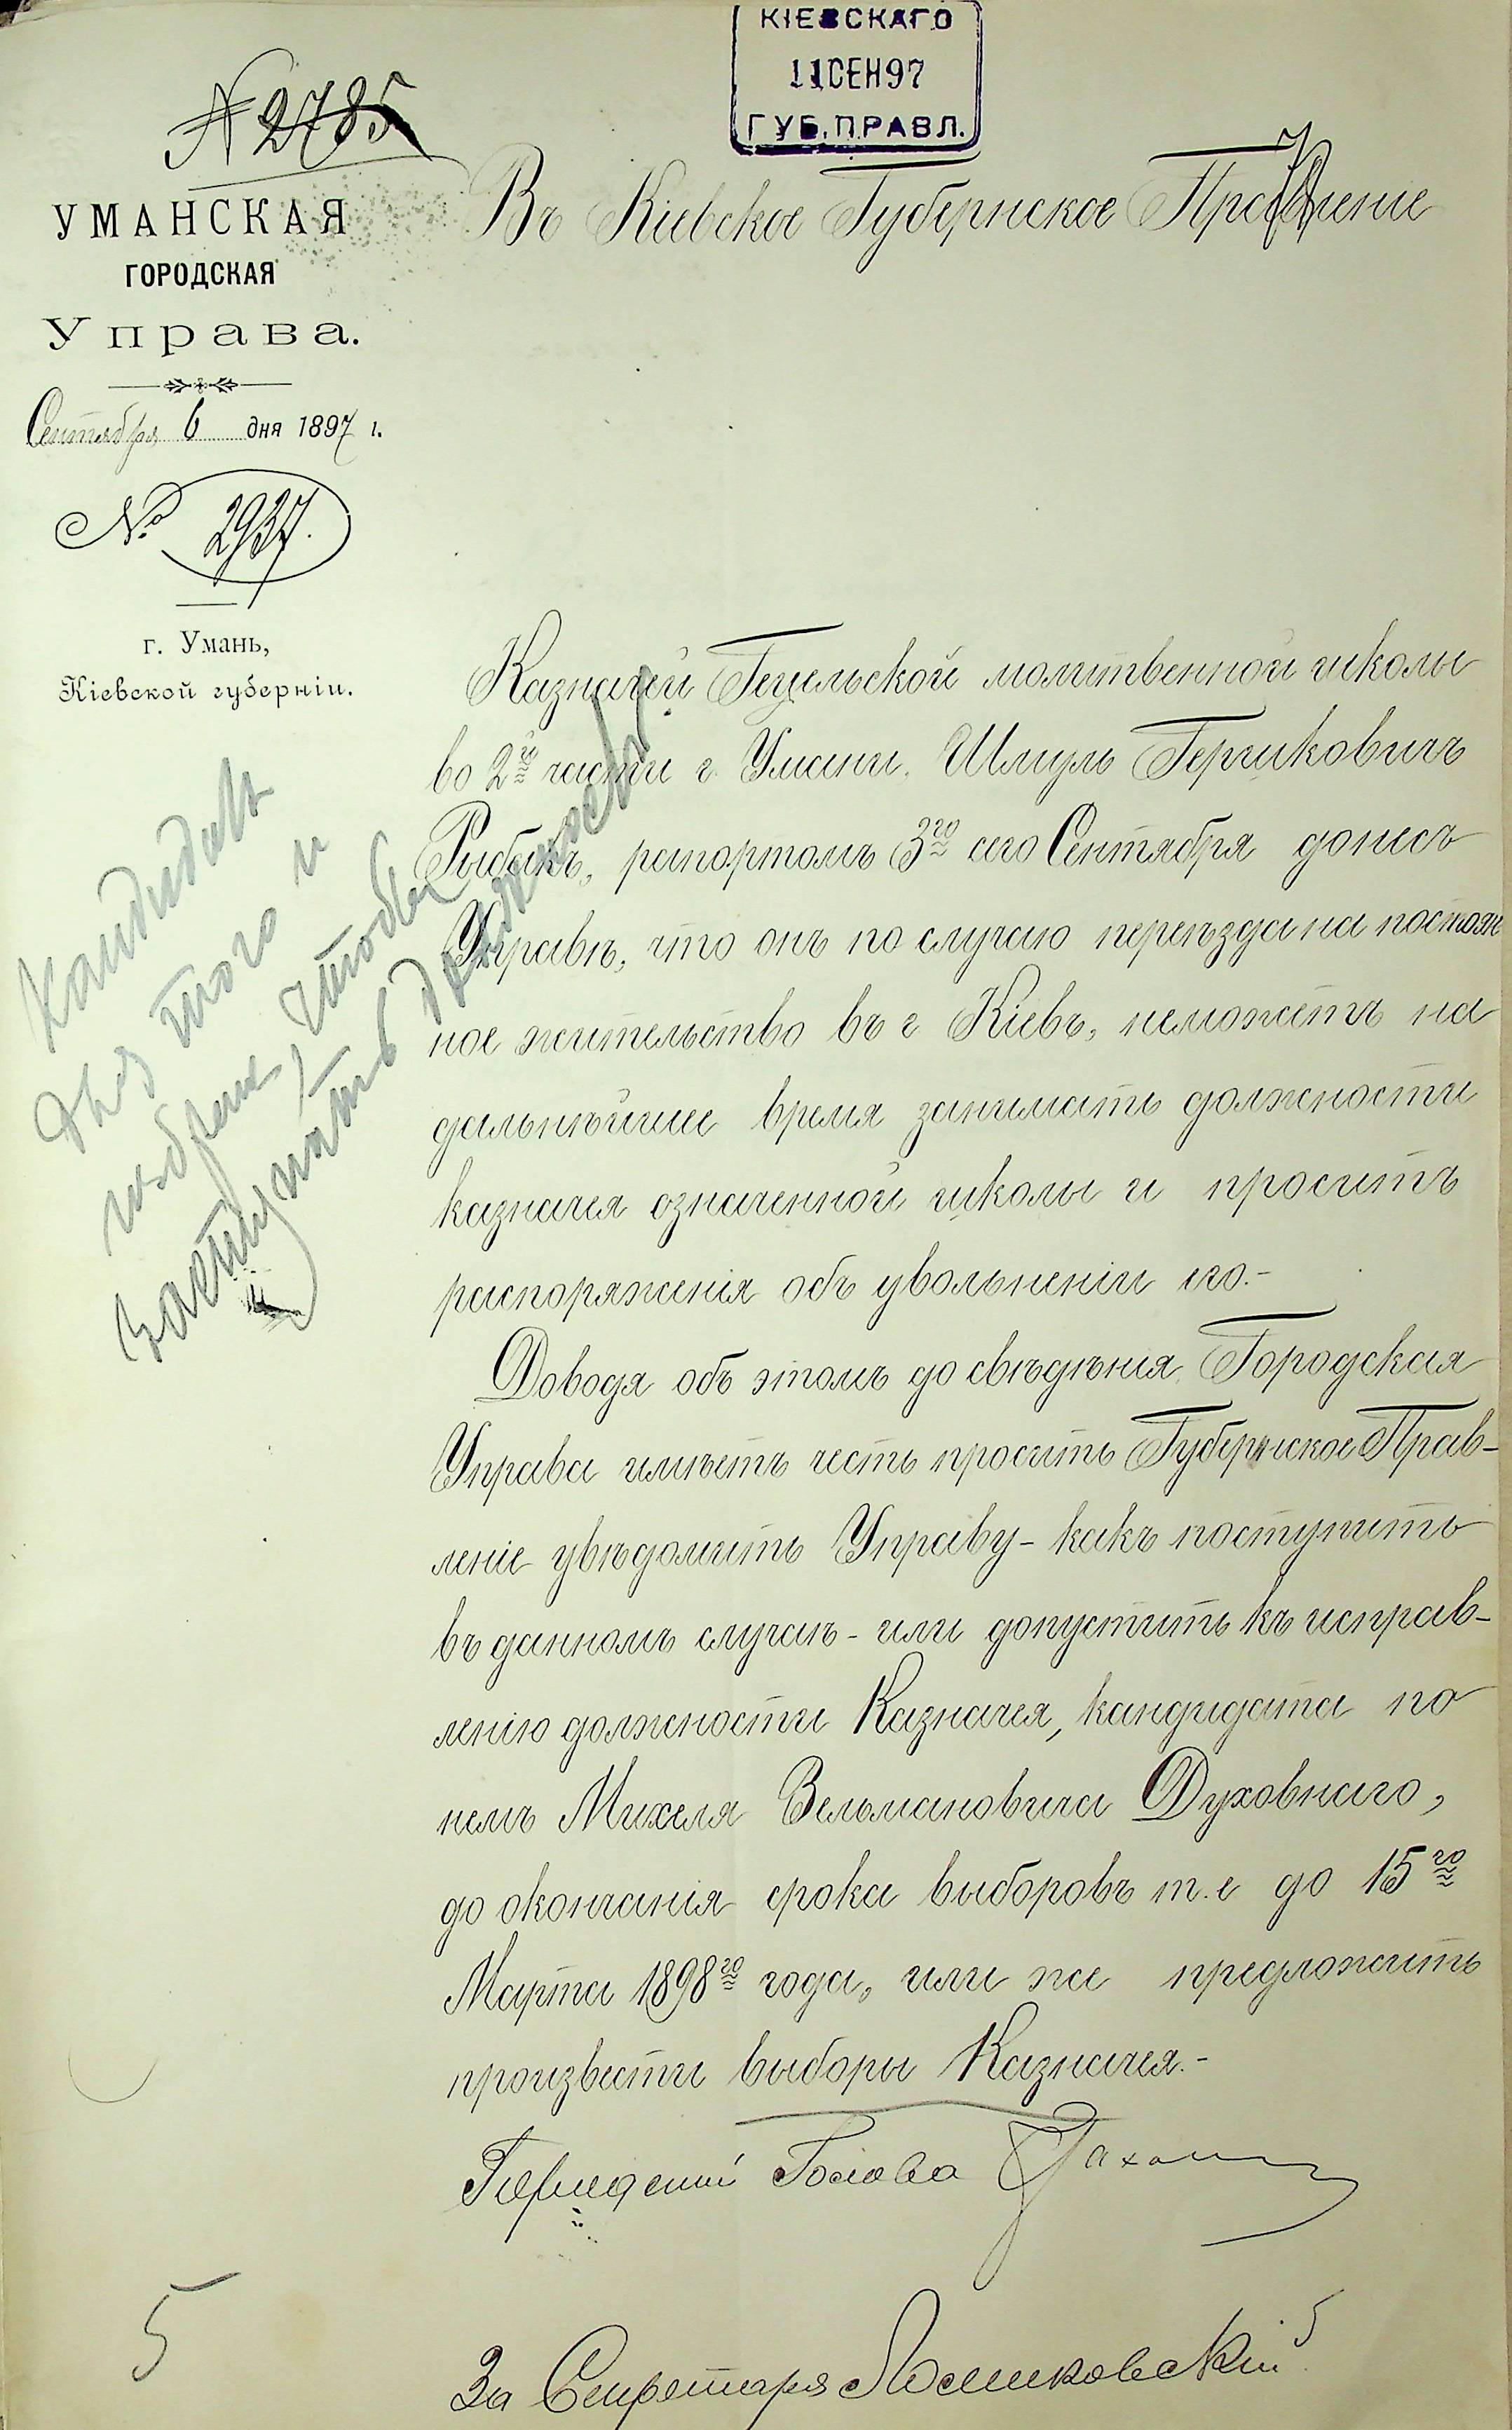 КІЕВСКАГО
11 СЕН 97
ГУБ. ПРАВЛ.
№ 2785
УМАНСКАЯ
ГОРОДСКАЯ
Управа.
Сентября 6 дня 1897 г.
№ 2937.
г. Умань,
Кіевской губерніи.
Въ Кіевское Губернское Правленіе
Казначей Гецельской молитвенной школы
во 2й части г. Умани, Шмуль Гершковичъ
Рыбакъ, рапортомъ 3го сего Сентября донесъ
Управѣ, что онъ по случаю переѣзда на постоян
ное жительство въ г Кіевъ, неможетъ на
дальнѣйшее время занимать должности
казначея означенной школы и проситъ
распоряженія объ увольненіи его.-
Доводя объ этомъ до свѣдѣнія, Городская
Управа имѣетъ честь просить Губернское Прав-
леніе увѣдомить Управу - какъ поступить
въ данномъ случаѣ - или допустить къ исправ-
ленію должности Казначея, кандидата по
немъ Михеля Зельмановича Духовнаго,
до окончанія срока выборовъ т.е до 15го
Марта 1898го года, или же предложить
произвести выборы Казначея.-
Кандидатъ
для того и
избран, чтобы
заступать в должность
Городской Голова
За Секретаря
5